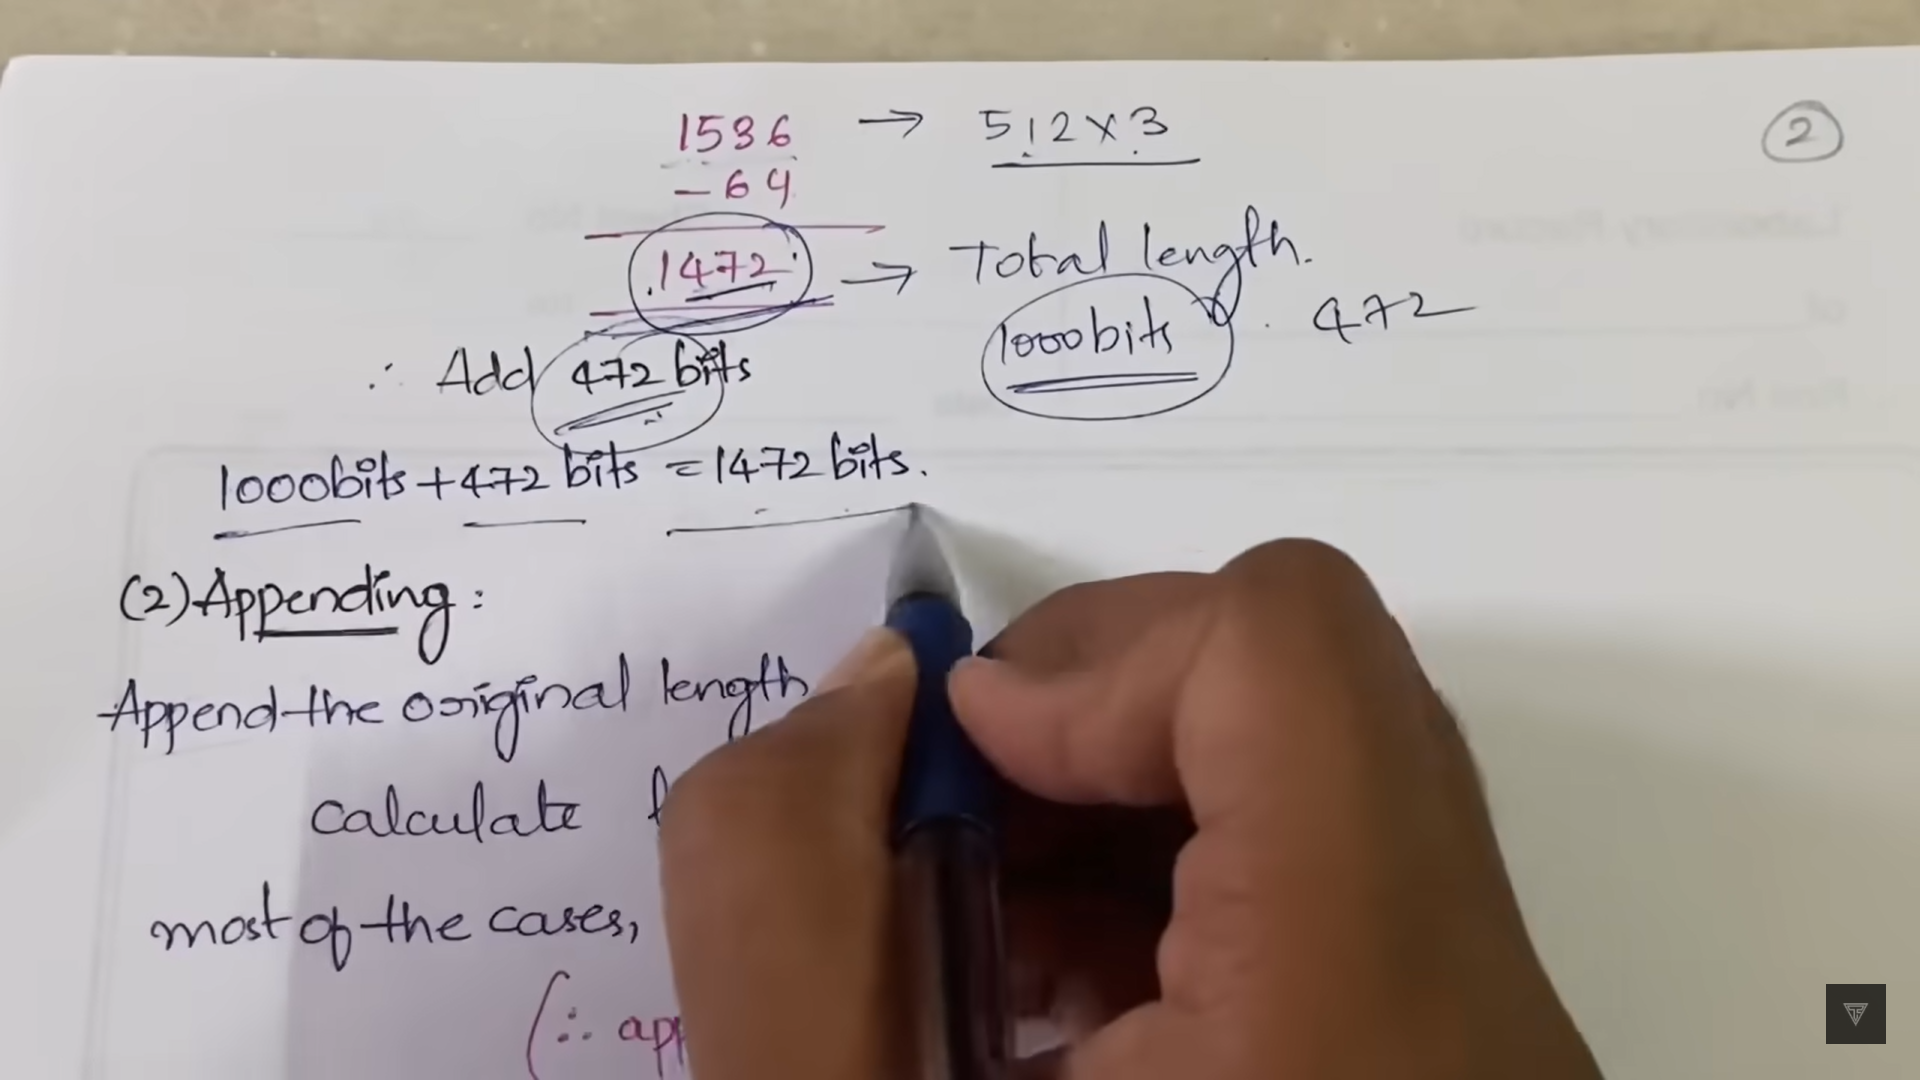 1536 → 512×3
2
-64
1472 → Total length.
1000bits . 472
∴ Add 472 bits
1000bits + 472 bits = 1472 bits.
(2) Appending:
Append the original length
calculate
most of the cases,
(∴ app